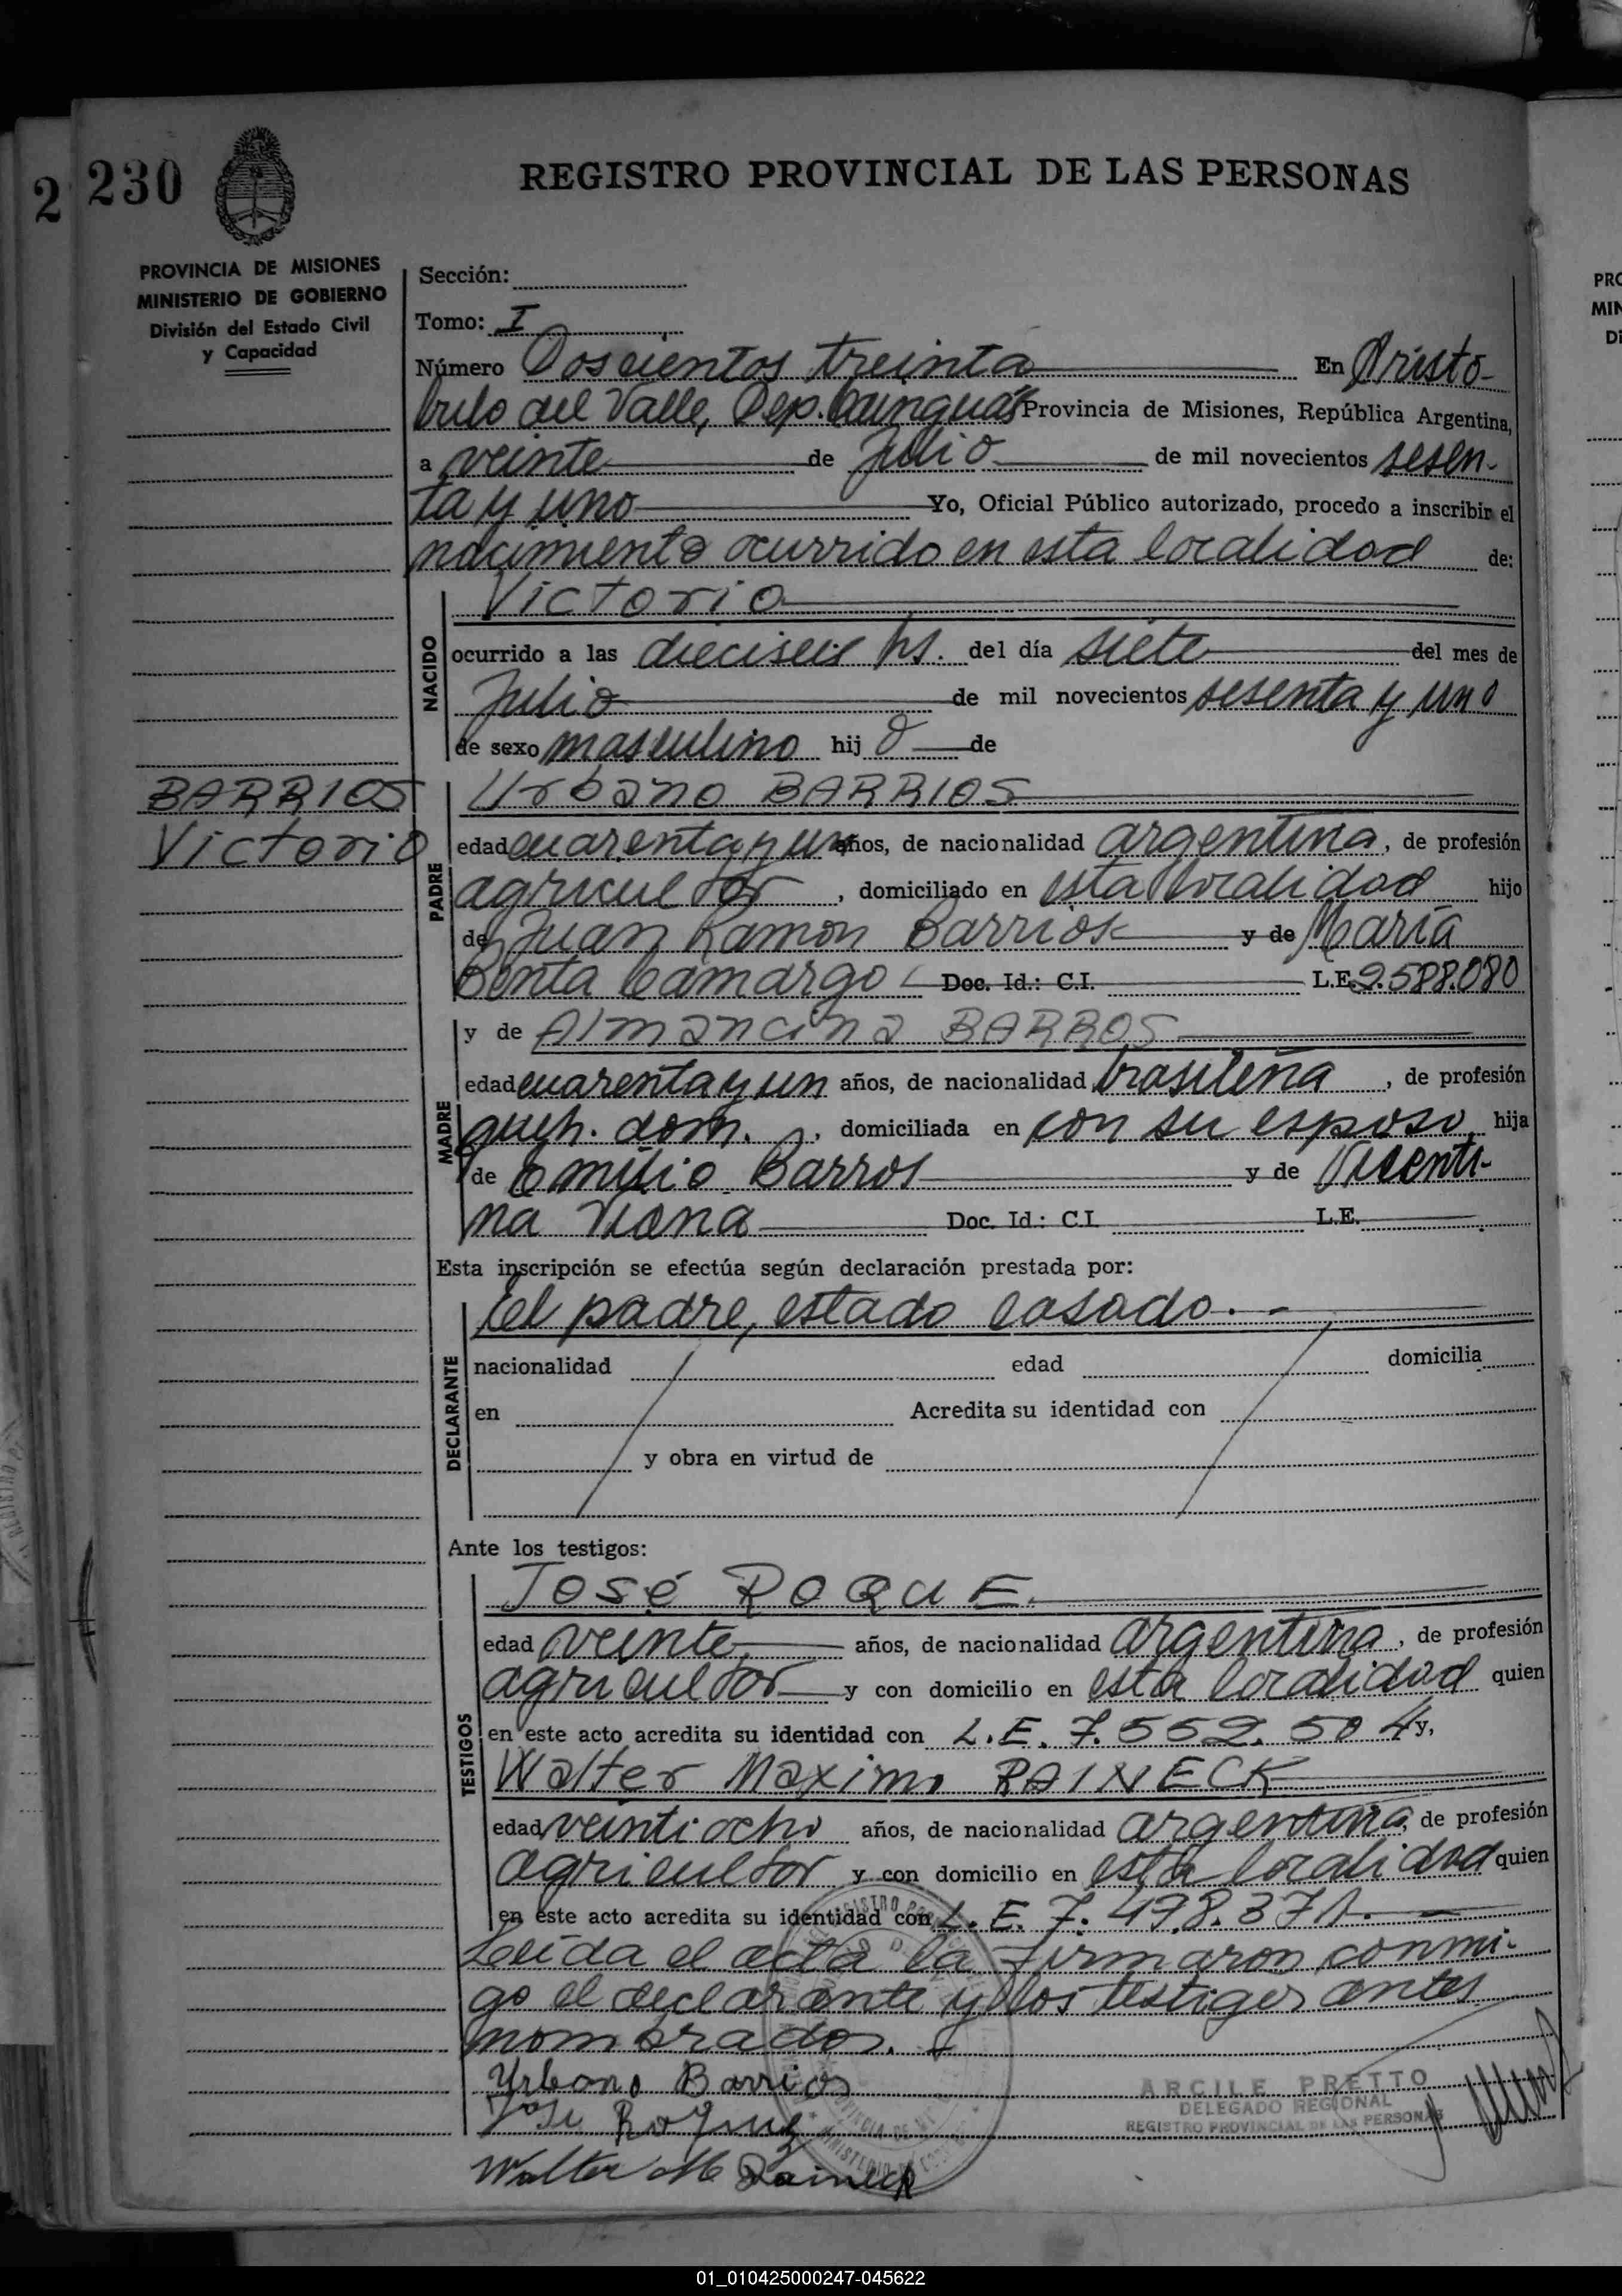 2 230
REGISTRO PROVINCIAL DE LAS PERSONAS
PROVINCIA DE MISIONES
MINISTERIO DE GOBIERNO
División del Estado Civil
y Capacidad
Sección:
Tomo: I
Número Doscientos treinta En Aristo-
bulo del Valle, Dep. Cainguás Provincia de Misiones, República Argentina,
a veinte de Julio de mil novecientos sesen-
ta y uno Yo, Oficial Público autorizado, procedo a inscribir el
nacimiento ocurrido en esta localidad de:
Victorio
NACIDO
ocurrido a las dieciseis hs. del día siete del mes de
Julio de mil novecientos sesenta y uno
de sexo masculino hijo de
BARRIOS
Victorio
PADRE
Urbano BARRIOS
edad cuarenta y un años, de nacionalidad argentina, de profesión
agricultor, domiciliado en esta localidad hijo
de Juan Ramon Barrios y de María
Benta Camargo Doc. Id.: C.I. L.E. 9.588.080
MADRE
y de Almancina BARROS
edad cuarenta y un años, de nacionalidad brasileña, de profesión
queh. dom., domiciliada en con su esposo hija
de Emilio Barros y de Vicenti-
na Viana Doc. Id.: C.I. L.E.
Esta inscripción se efectúa según declaración prestada por:
DECLARANTE
El padre, estado casado.-
nacionalidad edad domicilia
en Acredita su identidad con
y obra en virtud de
Ante los testigos:
TESTIGOS
José ROQUE
edad veinte años, de nacionalidad argentina, de profesión
agricultor y con domicilio en esta localidad quien
en este acto acredita su identidad con L.E. 7.552.504 y,
Walter Maximo RAINECK
edad veintiocho años, de nacionalidad argentina, de profesión
agricultor y con domicilio en esta localidad quien
en este acto acredita su identidad con L.E. 7.498.371.-
Leída el acta la firmaron conmi-
go el declarante y los testigos antes
nombrados.
Urbano Barrios
Jose Roque
Walter M Raineck
ARCILE PRETTO
DELEGADO REGIONAL
REGISTRO PROVINCIAL DE LAS PERSONAS
01_010425000247-045622